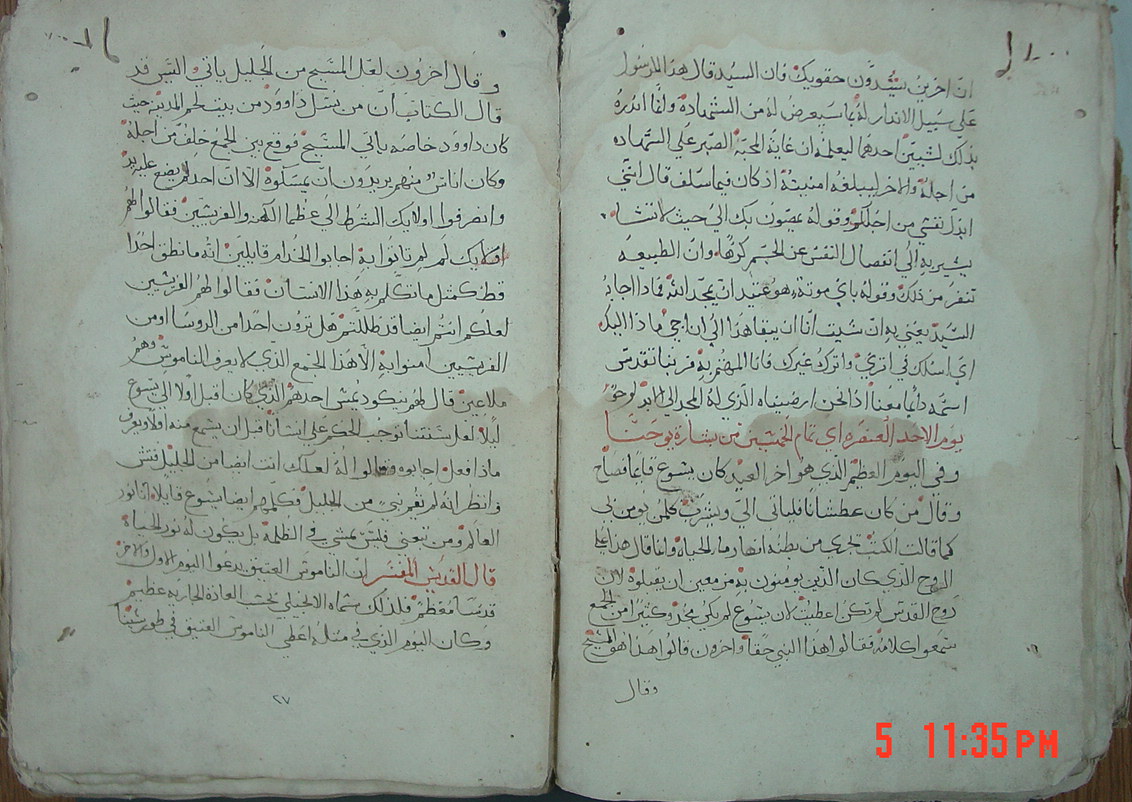 ان اخرين سيشدّون حقويك فان السيد قال هذا للرسول
على سبيل الانذار له بما سيعرض له من الشهادة وانما انذره
بذلك لشيين احدهما ليعلمه ان غاية المحبة الصبر على الشهاده
من اجله والاخر ليبلغه امنيته اذ كان فيما سلف قال انني
ابذل نفسي من اجلك وقوله يمضون بك الى حيث لا تشا
يشير به الى انفصال النفس عن الجسم كرهًا وان الطبيعه
تنفر من ذلك وقوله باي موتة هو عتيد ان يمجد الله فاذا اجابه
السيد يعني به ان شيت أنا ان يبقا هذا الى ان اجي ماذا اليك
اي اسلك في اثري واترك غيرك فانا المهتم به فربنا تقدس
اسمه دايما معنا اذ نحن ارضيناه الذي له المجد الى الابد
يوم الاحد العنصره اي تمام الخمسين من بشارة يوحنا
وفي اليوم العظيم الذي هو اخر العيد كان يسوع قايما فصاح
وقال من كان عطشانا فلياتي الي ويشرب كلمن يومن بي
كما قالت الكتب تجري من بطنه انهار ما الحياة وانما قال هذا على
الروح الذي كان الذين يومنون به مزمعين ان يقبلوه لان
روح القدس لم تكن اعطيت لان يسوع لم يكن مجد وكثير من الجمع
سمعوا كلامه فقالوا هذا النبي حقا واخرون قالوا هذا هو المسيح
وقال
وقال اخرون لعل المسيح من الجليل ياتي اليس قد
قال الكتاب أن من نسل داوود من بيت لحم المدينه حيث
كان داوود خاصه ياتي المسيح فوقع بين الجمع خلف من اجله
وكان اناس منهم يريدون ان يمسكوه الا ان احد لم يضع عليه يد
وانصرفوا اوليك الشرط الى عظما الكهن والفريسين فقالوا لهم
اوليك لم لم تاتوا به اجابوا الخدام قايلين انه ما نطق احدا
قط كمثل ما تكلم به هذا الانسان فقالوا لهم الفريسين
لعلكم انتم ايضا قد ظللتم هل ترون احدا من الروسا او من
الفريسيين امنوا به الا هذا الجمع الذي لا يعرف الناموس وهم
ملاعين قال لهم نيكوديمس احدهم الذي كان اقبل اولا الى يسوع
ليلا لعل سنتنا توجب الحكم على انسانا قبل ان يسمع منه اولا ويعرف
ماذا فعل اجابوه وقالوا له لعلك انت ايضا من الجليل فتش
وانظر انه لم يقم نبي من الجليل فكلمهم ايضا يسوع قايلا انا نور
العالم ومن تبعني فليس يمشي في الظلمة بل يكون له نور الحياة
قال القديس المفسر ان الناموس العتيق يدعوا اليوم الاول والاخر
قديسا معظم فلذلك سماه الانجيلي بحسب العادة الجاريه عظيم
وكان اليوم الذي في مثله اعطى الناموس العتيق في طور سينا
٢٧
5 11:35 PM